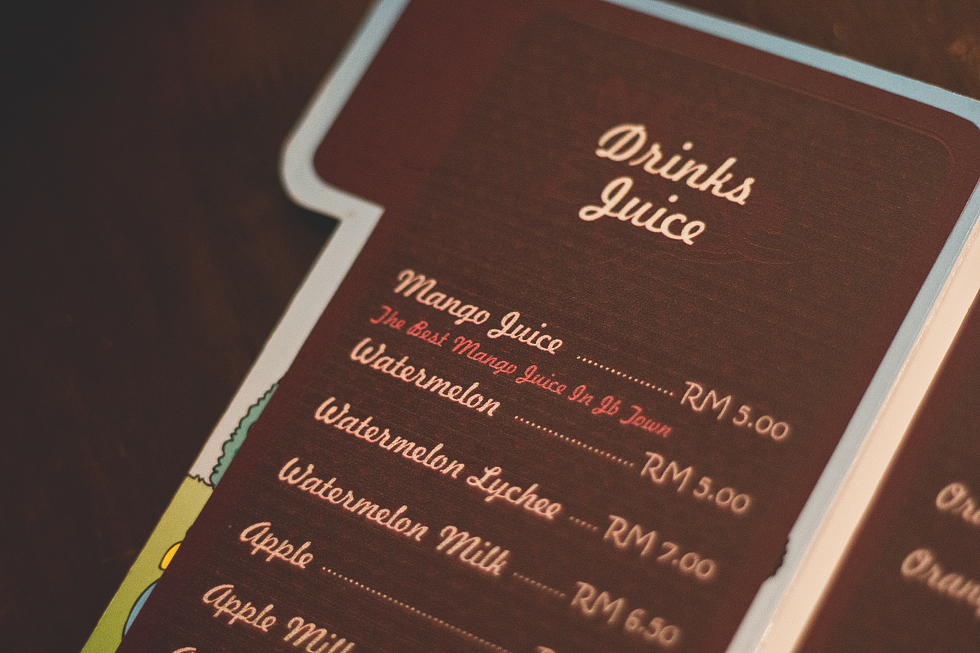 Drinks
Juice
Mango Juice ............... RM 5.00
The Best Mango Juice In Jb Town
Watermelon .................. RM 5.00
Watermelon Lychee ..... RM 7.00
Watermelon Milk ......... RM 6.50
Apple
Apple Milk